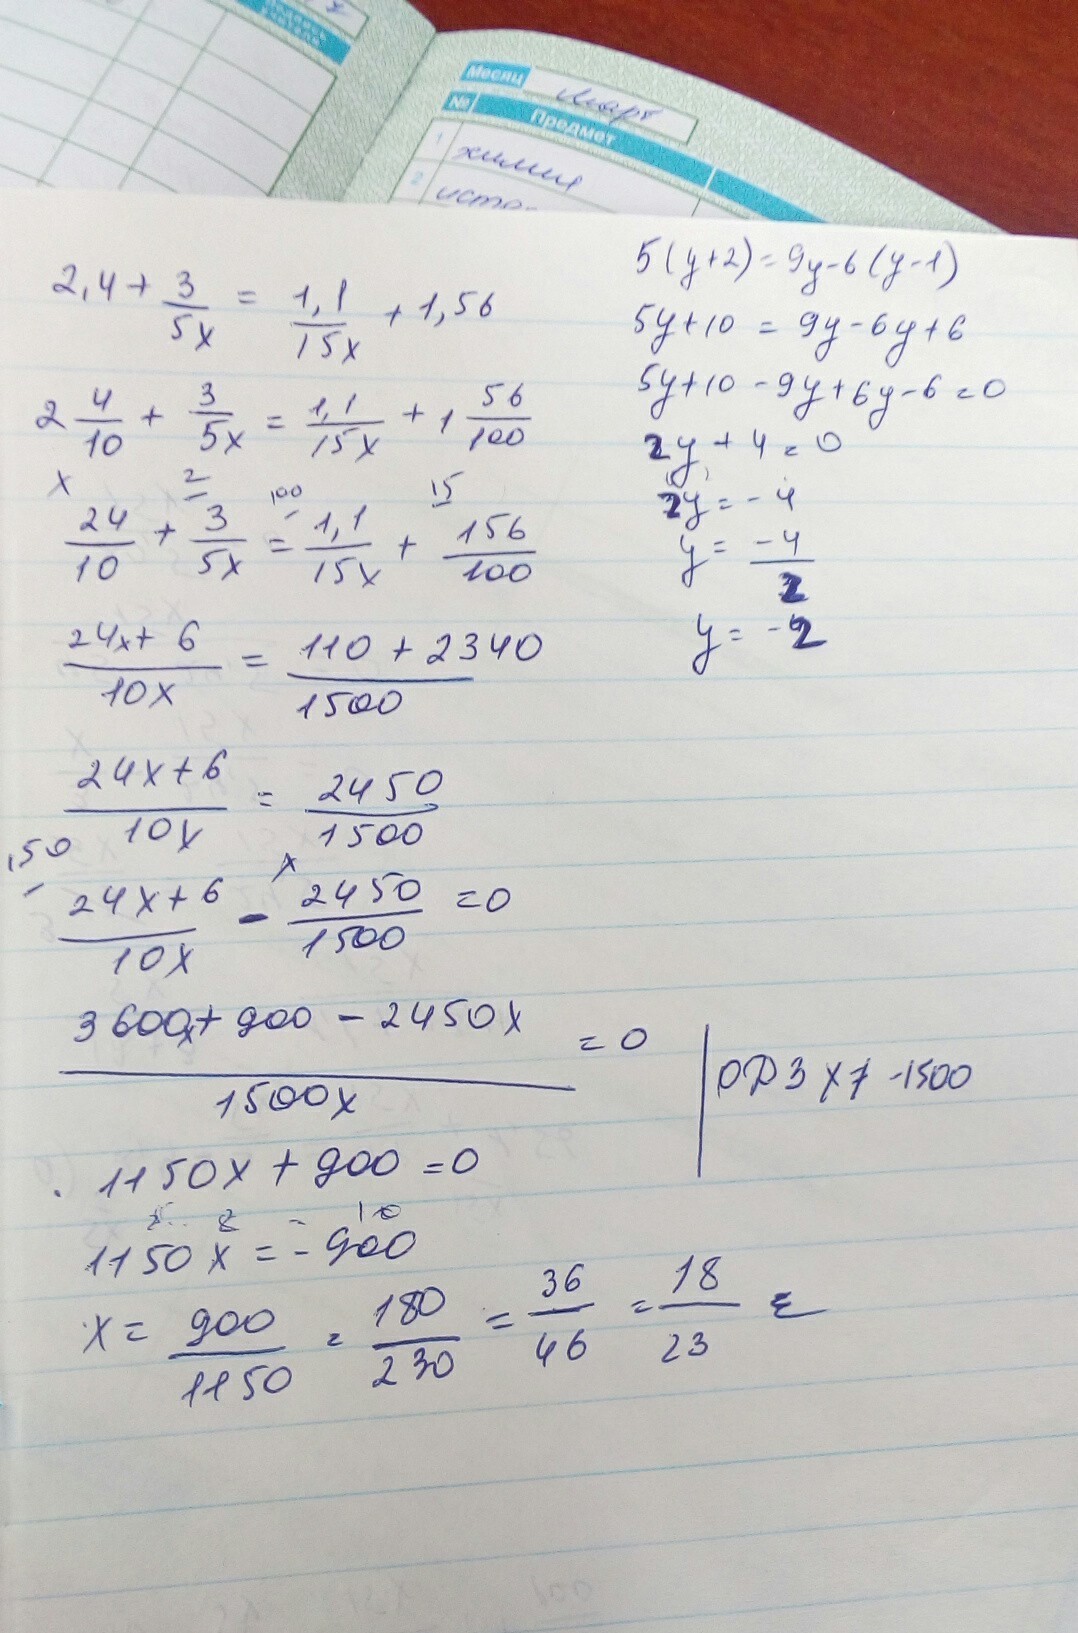 Подпись учителя
Месяц Март
№ Предмет
1 химия
2 исто-
2,4 + 3/5x = 1,1/15x + 1,56
2 4/10 + 3/5x = 1,1/15x + 1 56/100
x 2 100 15
24/10 + 3/5x = 1,1/15x + 156/100
24x + 6/10x = 110 + 2340/1500
24x + 6/10x = 2450/1500
150 x
24x + 6/10x - 2450/1500 = 0
3600x + 900 - 2450x/1500x = 0
ОДЗ x ≠ -1500
1150x + 900 = 0
1150x = -900
x = 900/1150 = 180/230 = 36/46 = 18/23
5(y+2) = 9y-6(y-1)
5y+10 = 9y-6y+6
5y+10 - 9y+6y-6=0
2y + 4 = 0
2y = -4
y = -4/2
y = -2